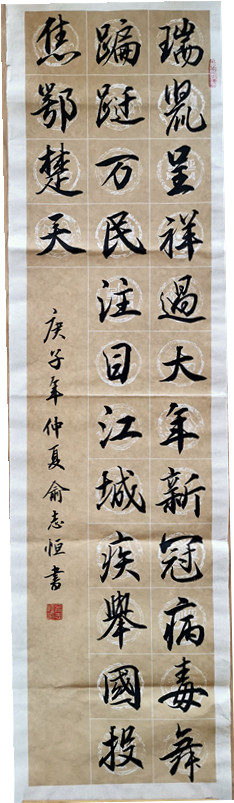 瑞鼠呈祥過大年新冠病毒舞
蹁跹万民注目江城疾舉國投
焦鄂楚天
庚子年仲夏俞志恒書